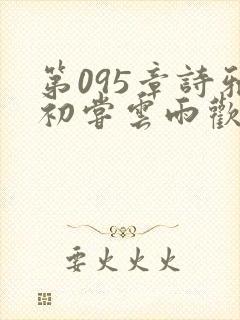 第095章詩雅
初嘗雲雨歡
要火火火